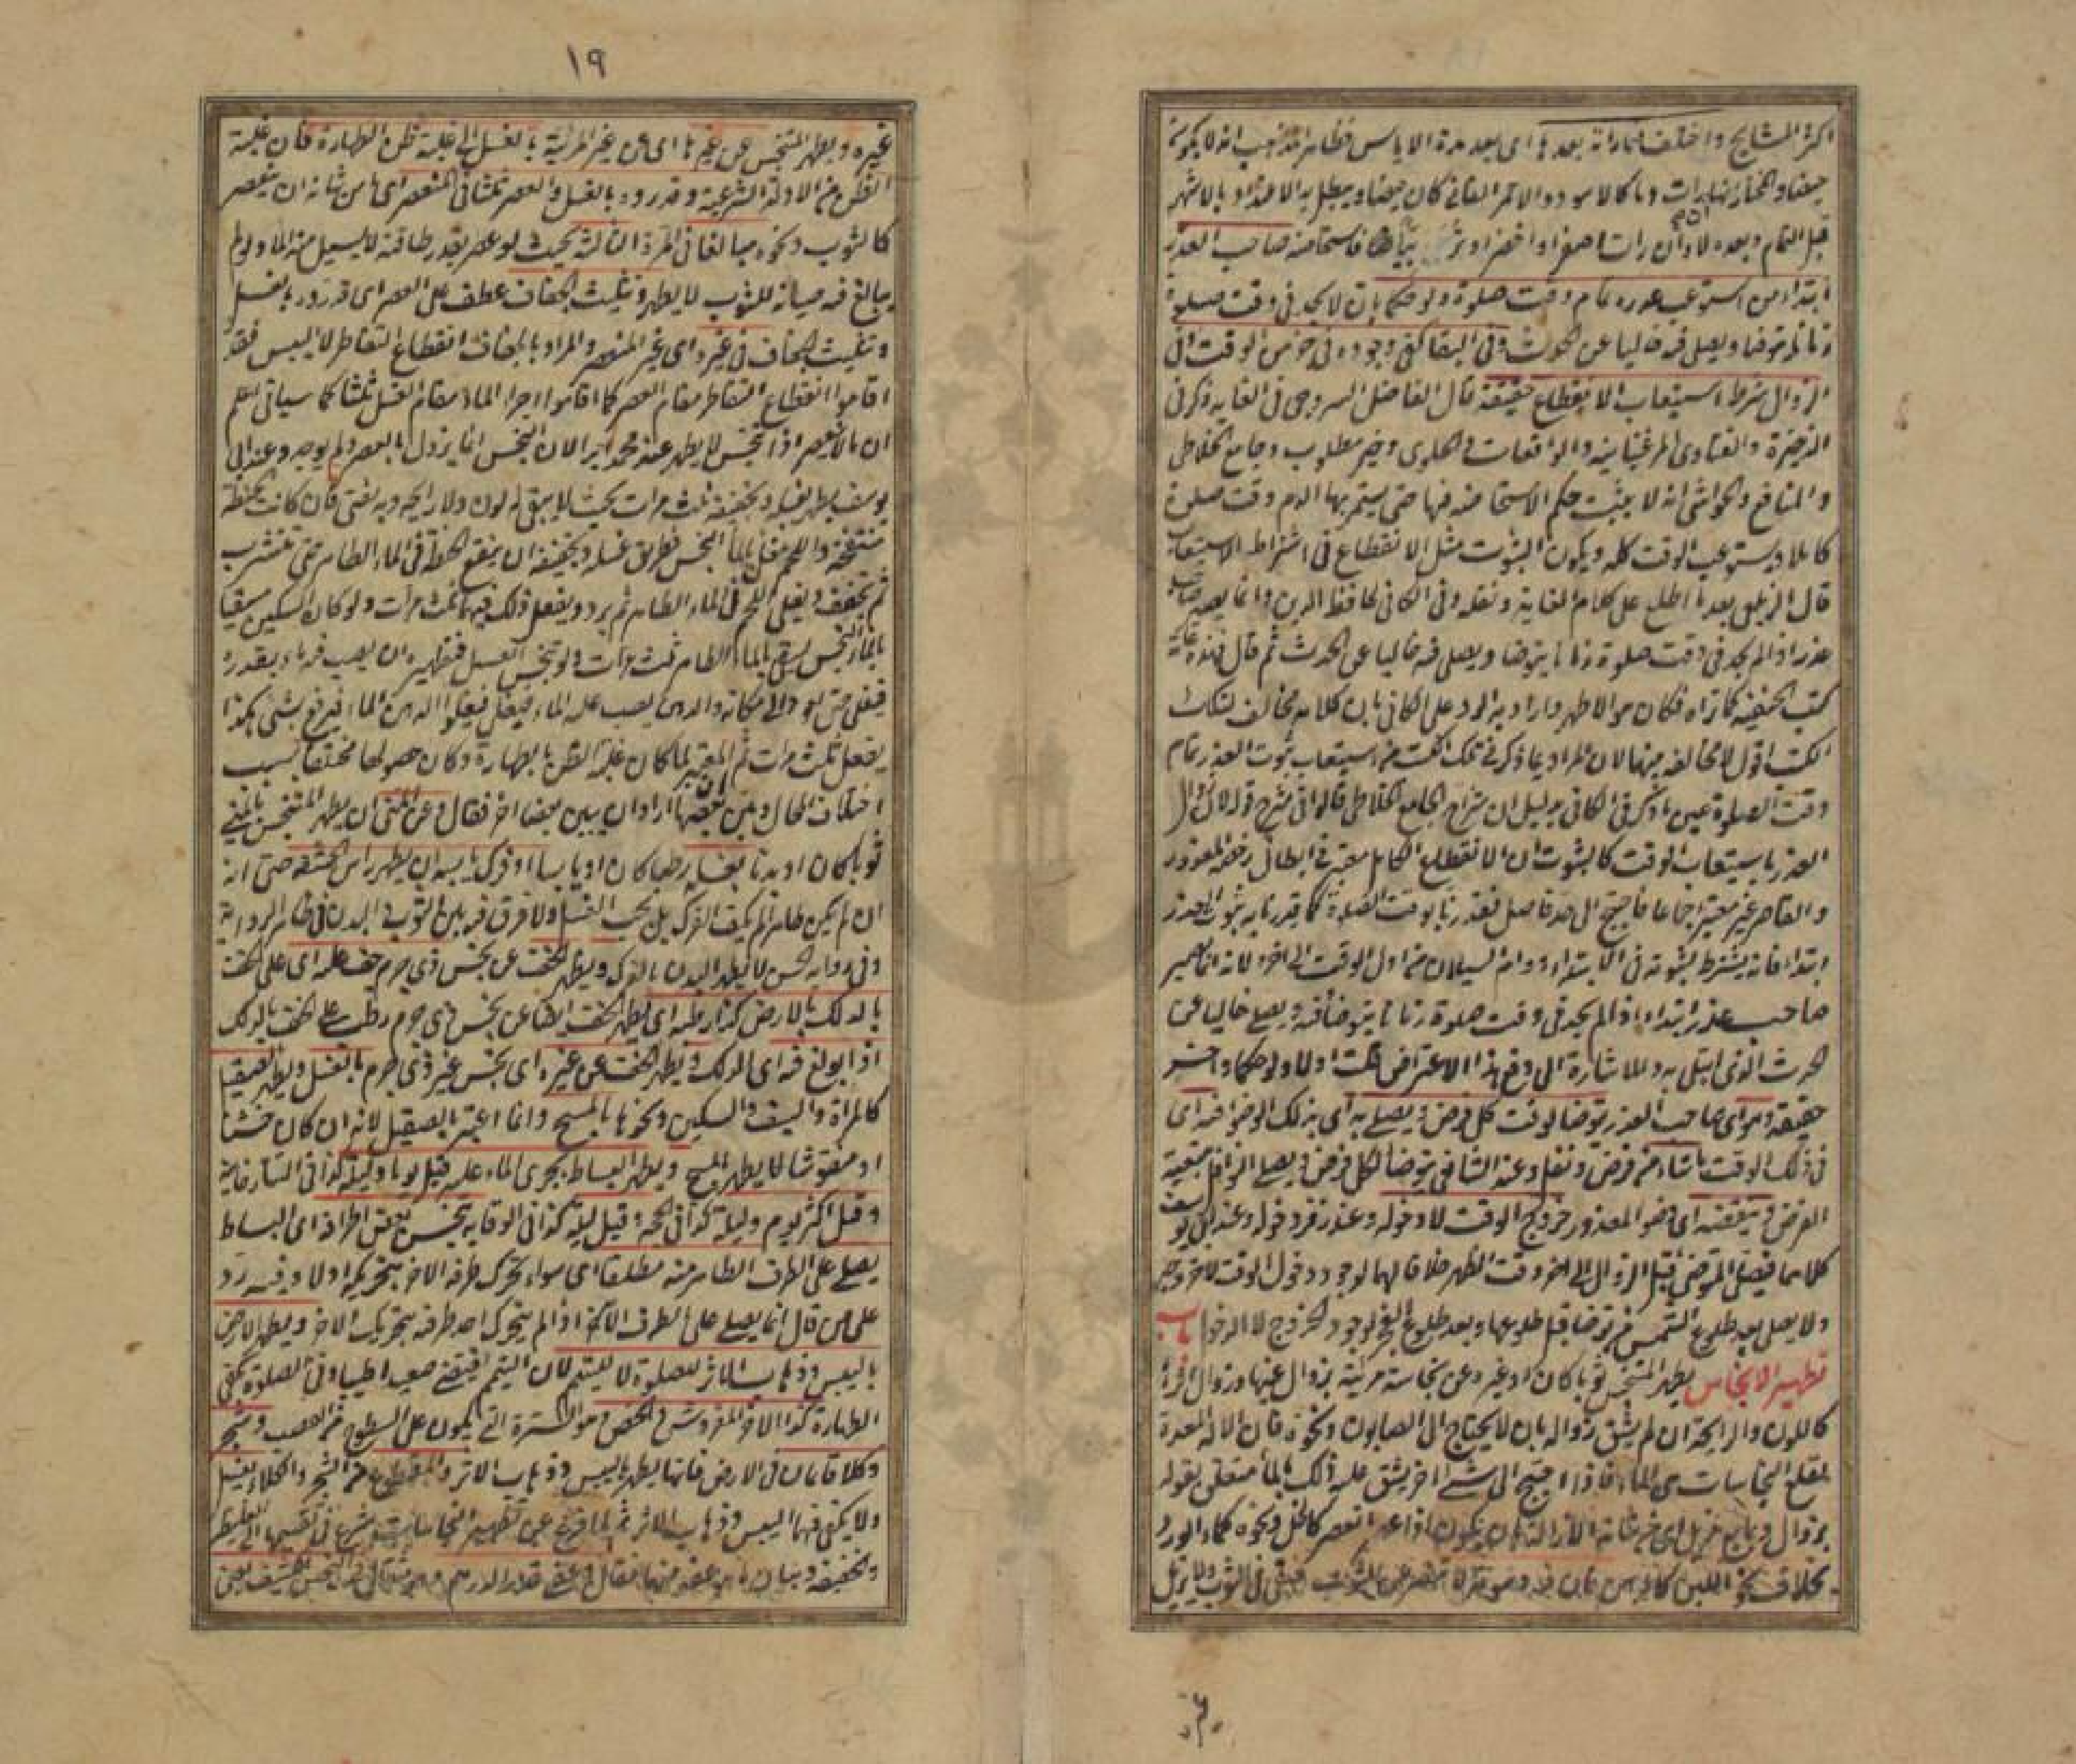 اكثر المشايخ واختلف فيما راته بعدها اى بعد مدة الاياس فظاهر المذهب انه لا يكون
حيضا والمختار انها ان رات دما كالاسود والاحمر القانى كان حيضا ويبطل به الاعتداد بالاشهر
قبل التمام وبعده لا وان رات اصفر او اخضر او فاستحاضة صاحب العذر
ابتداء من استوعب عذره تمام وقت صلوة ولو حكما بان لا يجد فى وقت صلوة
زمانا يتوضأ ويصلى فيه خاليا عن الحدث وفى البقا كفى وجوده فى جزء من الوقت وفى
الزوال شرط استيعاب الانقطاع حقيقة قال الفاضل السروجى فى الغاية ذكر فى
الذخيرة والفتاوى المرغينانية والواقعات والحاوى وخير مطلوب وجامع الخلاطى
والمنافع والحواشى انه لا يثبت حكم الاستحاضة فيها حتى يستمر بها الدم وقت صلوة
كاملا ويستوعب الوقت كله ويكون الثبوت مثل الانقطاع فى اشتراط الاستيعاب
قال الزيلعى بعد ما اطلع على كلام الغاية ونقله وفى الكافى لحافظ الدين وانما يصير صاحب
عذر اذا لم يجد فى وقت صلوة زمانا يتوضا ويصلى فيه خاليا عن الحدث ثم قال فهذه عامة
كتب الحنفية كما تراه فكان هو الاظهر واراد به الرد على الكافى بان كلامه مخالف لتلك
الكتب اقول لا مخالفة بينهما لان المراد بما ذكر فى تلك الكتب من استيعاب ثبوت العذر تمام
وقت الصلوة عين ما ذكر فى الكافى بدليل ان شراح الجامع الخلاطى قالوا فى شرح قوله لان زوال
العذر باستيعاب الوقت كالثبوت ان الانقطاع الكامل معتبر فى ابطال رخصة المعذور
والقاصر غير معتبر اجماعا فاحتيج الى حد فاصل فقدرنا بوقت الصلوة كما قدرنا به ثبوت العذر
ابتداء فانه يشترط لثبوته فى الابتداء دوام السيلان من اول الوقت الى اخره لانه انما يصير
صاحب عذر ابتداء اذا لم يجد فى وقت صلوة زمانا يتوضأ فيه ويصلى خاليا عن
الحدث الذى ابتلى به وللاشارة الى دفع هذا الاعتراض قلت اولا ولو حكما واخرا
حقيقة وهو اى صاحب العذر يتوضا لوقت كل فرض ويصلى به اى بذلك الوضوء فيه اى
فى ذلك الوقت ما شاء من فرض ونفل وعند الشافعى يتوضأ لكل فرض ويصلى النوافل بتبعية
الفرض وينقضه اى وضوء المعذور خروج الوقت لا دخوله وعند زفر دخوله وعند ابى يوسف
كلاهما فيصلى المتوضئ قبل الزوال الى اخر وقت الظهر خلافا لهما لوجود دخول الوقت لا خروجه
ولا يصلى بعد طلوع الشمس من توضا قبل طلوعها وبعد طلوع الفجر لوجود الخروج لا الدخول باب
تطهير الانجاس يطهر المتنجس ثوبا كان او غيره عن نجاسة مرئية بزوال عينها وزوال اثرها
كاللون والرايحة ان لم يشق زواله بان لا يحتاج الى الصابون ونحوه فان الالة المعدة
لقلع النجاسات هى الماء فاذا احتيج الى شئ اخر يشق عليه ذلك بالماء متعلق بقوله
بزوال وبمايع مزيل اى من شانه الازالة بان يكون اذا عصر انعصر كالخل ونحوه كماء الورد
بخلاف نحو اللبن كالدهن فان فيه دسومة لا تنعصر عن الثوب فتبقى فى الثوب ولا تزيل
١٩
غيره ويطهر المتنجس عن غيرها اى عن غير المرئية بالغسل الى غلبة ظن الطهارة فان غلبة
الظن من الادلة الشرعية وقدروه بالغسل والعصر ثلثا فى المنعصر اى ما من شانه ان ينعصر
كالثوب ونحوه مبالغا فى المرة الثالثة بحيث لو عصر بقدر طاقته لا يسيل منه الماء ولو لم
يبالغ فيه صيانة للثوب لا يطهر وتثليث الجفاف عطف على العصر اى قدروه بالغسل
وتثليث الجفاف فى غيره اى غير المنعصر والمراد بالجفاف انقطاع التقاطر لا اليبس فقد
اقاموا انقطاع التقاطر مقام العصر كما اقاموا اجراء الماء مقام الغسل ثلثا كما سياتى اعلم
ان ما لا ينعصر اذا تنجس لا يطهر عند محمد ابدا لان النجس انما يزول بالعصر ولم يوجد وعند ابى
يوسف يطهر بغسله وتجفيفه ثلث مرات بحيث لا يبقى له لون ولا رايحة وبه يفتى فان كانت الحنطة
منتفخة واللحم مغلى بالماء النجس فطريق غسله وتجفيفه ان ينقع الحنطة فى الماء الطاهر حتى تتشرب
ثم تجفف ويغلى اللحم فى الماء الطاهر ثم يبرد ويفعل ذلك فيهما ثلث مرات ولو كان السكين مسقيا
بالماء النجس يسقى بالماء الطاهر ثلث مرات ولو تنجس العسل فتطهيره ان يصب فيه ماء بقدره
فيغلى حتى يعود الى مكانه والدهن يصب عليه الماء فيغلى فيعلو الدهن الماء فيرفع بشئ هكذا
يفعل ثلث مرات ثم المعتبر لما كان غلبة الظن بالطهارة وكان حصولها مختلفا بسبب
اختلاف المحال وبين بعضها اراد ان يبين بعضا اخر فقال وعن المنى اى يطهر المتنجس بالمنى
ثوبا كان او بدنا بغسله رطبا كان او يابسا او فرك يابسه ان يطهر راس الحشفة حتى انه
ان لم يكن طاهرا لم يكف الفرك بل يجب الغسل ولا فرق فيه بين الثوب والبدن فى ظاهر الرواية
وفى رواية الحسن لا يطهر البدن بالفرك ويطهر الخف عن نجس ذى جرم جف عليه اى على الخف
بالدلك بالارض كذا رطبه اى يطهر الخف ايضا عن نجس ذى جرم رطب على الخف بالدلك
اذا بولغ فيه اى الدلك ويطهر الخف عن غيره اى نجس غير ذى جرم بالغسل ويطهر الصقيل
كالمرآة والسيف والسكين ونحوها بالمسح وانما اعتبر الصقيل لانه ان كان خشنا
او منقوشا لا يطهر بالمسح ويطهر البساط بجرى الماء عليه قيل يوما وليلة كذا فى التتارخانية
وقيل اكثر يوم وليلة كذا فى وقيل ليلة كذا فى الوقاية تنجس بعض اطرافه اى البساط
يصلى على الطرف الطاهر منه مطلقا اى سواء تحرك طرفه الاخر بتحريكه اولا وفيه رد
على من قال انما يصلى على الطرف الاخر اذا لم يتحرك احد طرفيه بتحريك الاخر ويطهر الارض
باليبس وذهاب الاثر للصلوة لا للتيمم لان التيمم يقتضى صعيدا طيبا وفى الصلوة تكفى
الطهارة كذا الاجر المفروش والخص وهو السترة التى يكون على السطوح من القصب وشجر
وكلا قائمان فى الارض فانها يطهر باليبس وذهاب الاثر والمقطوع من الشجر والكلاء يغسل
ولا يكفى فيها اليبس وذهاب الاثر ثم لما فرغ عن تطهير النجاسات شرع فى تقسيمها الى الغليظة
والخفيفة وبيان ما هو عفو منها فقال وعفى قدر الدرهم وهو مثقال فى النجس الكثيف